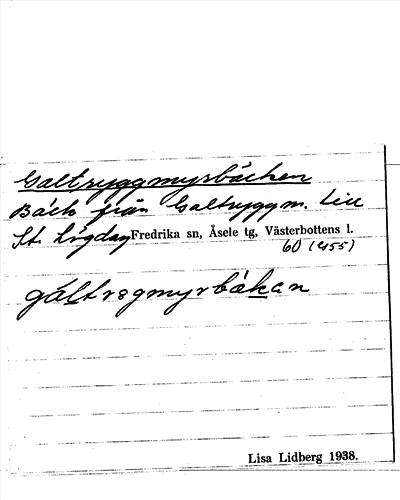 Galtryggmyrbäcken
Bäck från Galtryggm. till
St. Lögdan Fredrika sn, Åsele tg, Västerbottens l.
60 (455)
gáltrsgmyrbäkan
Lisa Lidberg 1938.